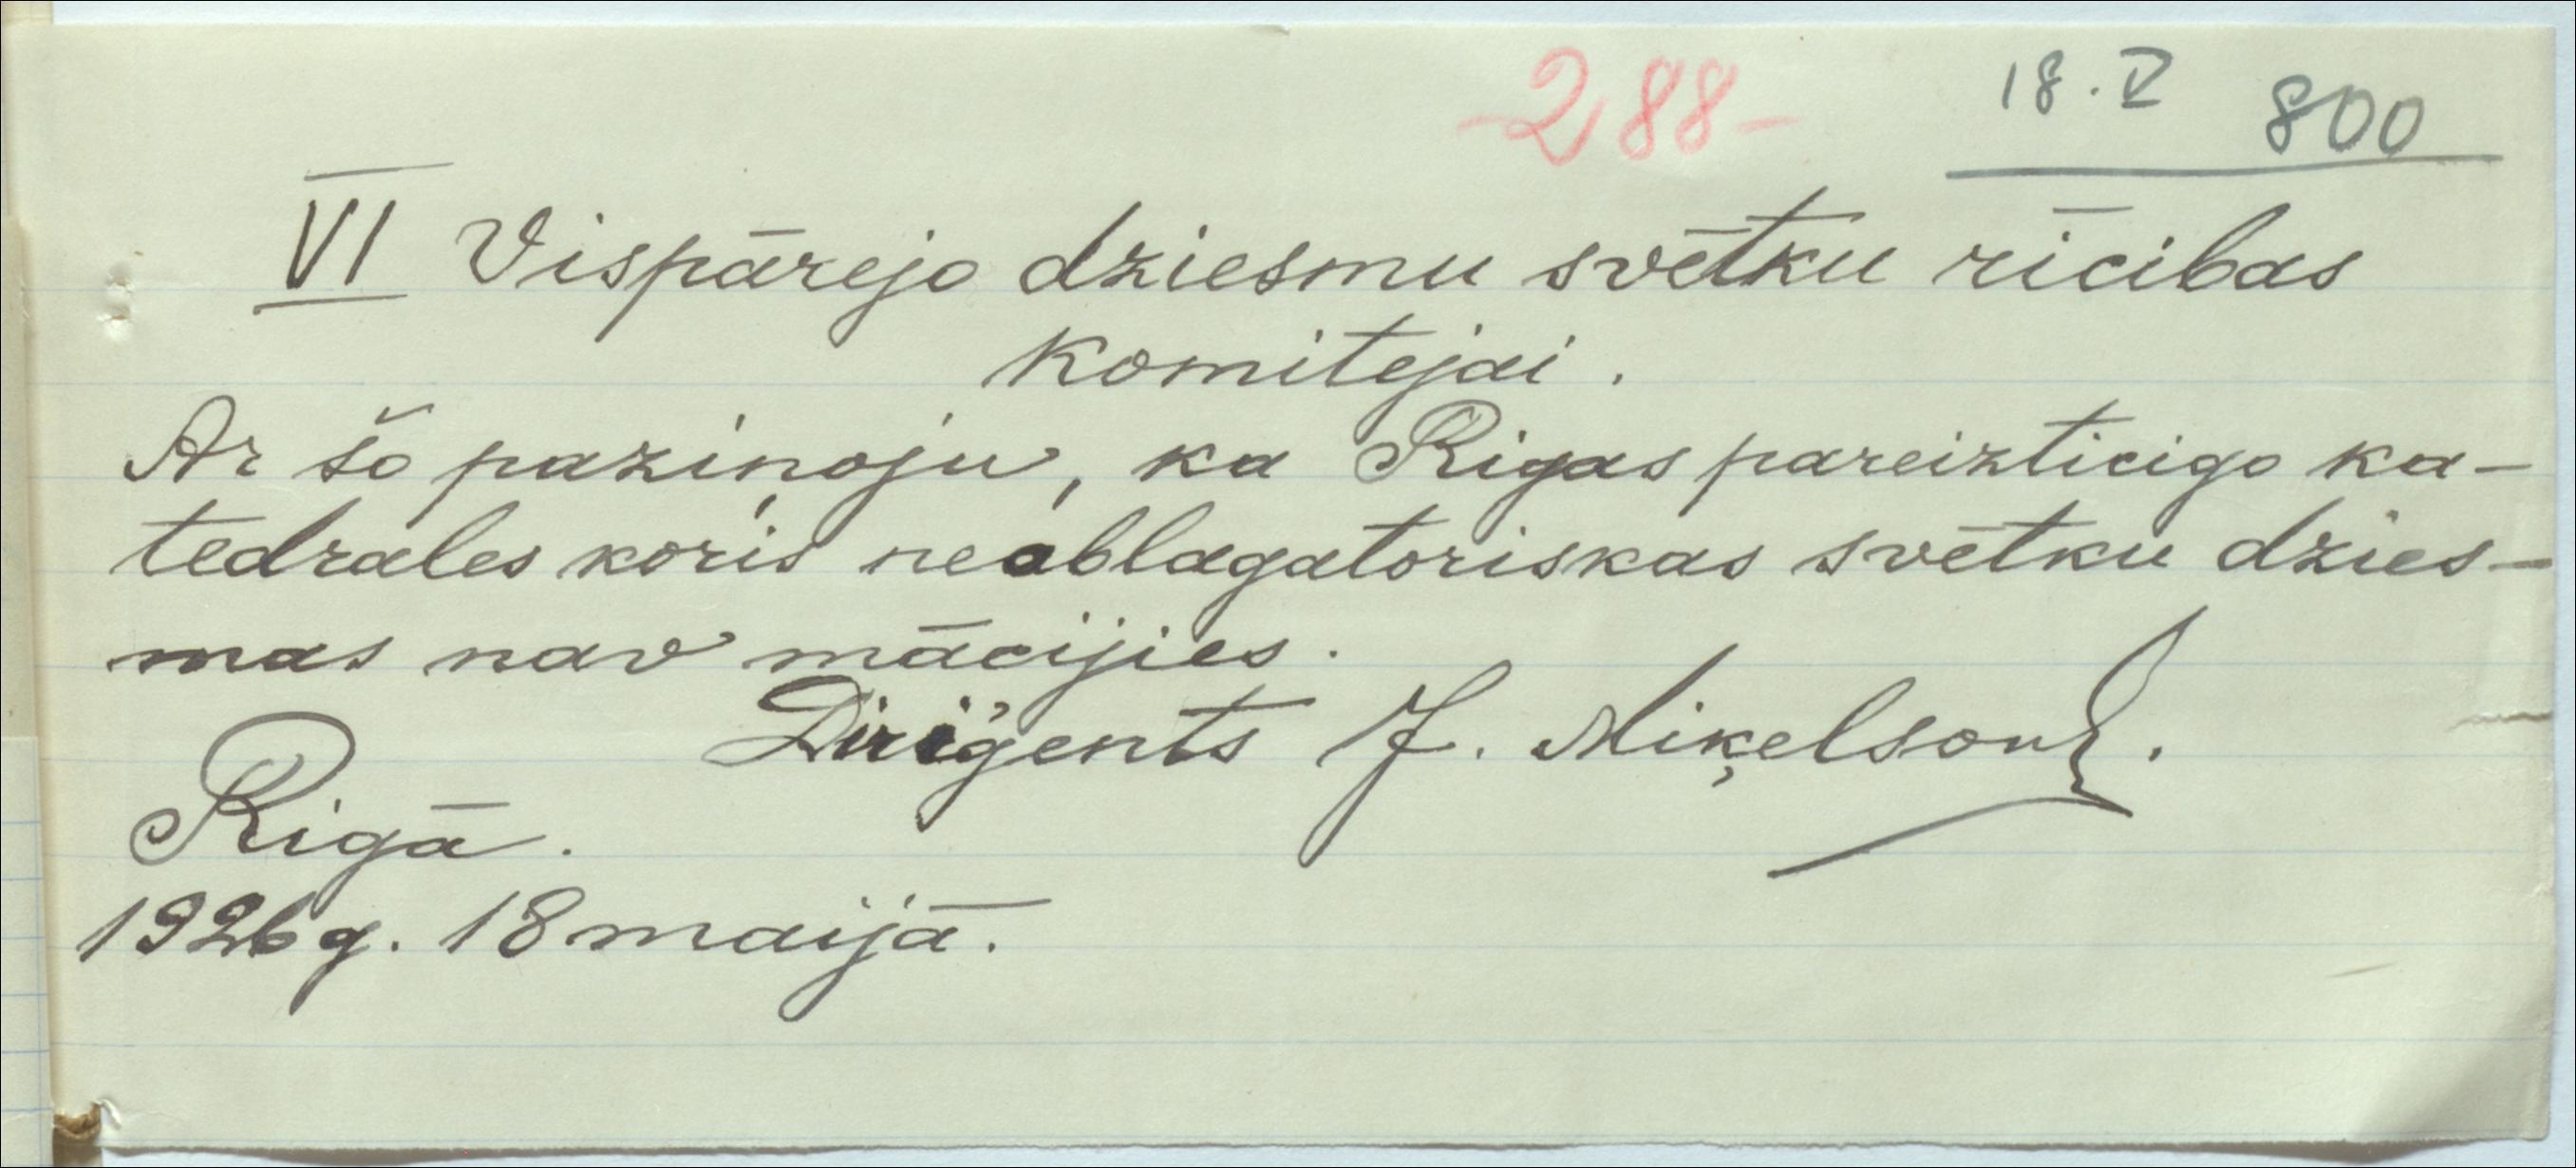 -288-
18. V 800
VI Vispārejo dziesmu svētku rīcibas
Komitejai.
Ar šo paziņoju, ka Rigas pareizticigo ka-
tedrales koŗis neablagatoriskas svētku dzies-
mas nav mācijies.
Diriģents J. Miķelsons.
Rigā.
1926 g. 18 maijā.